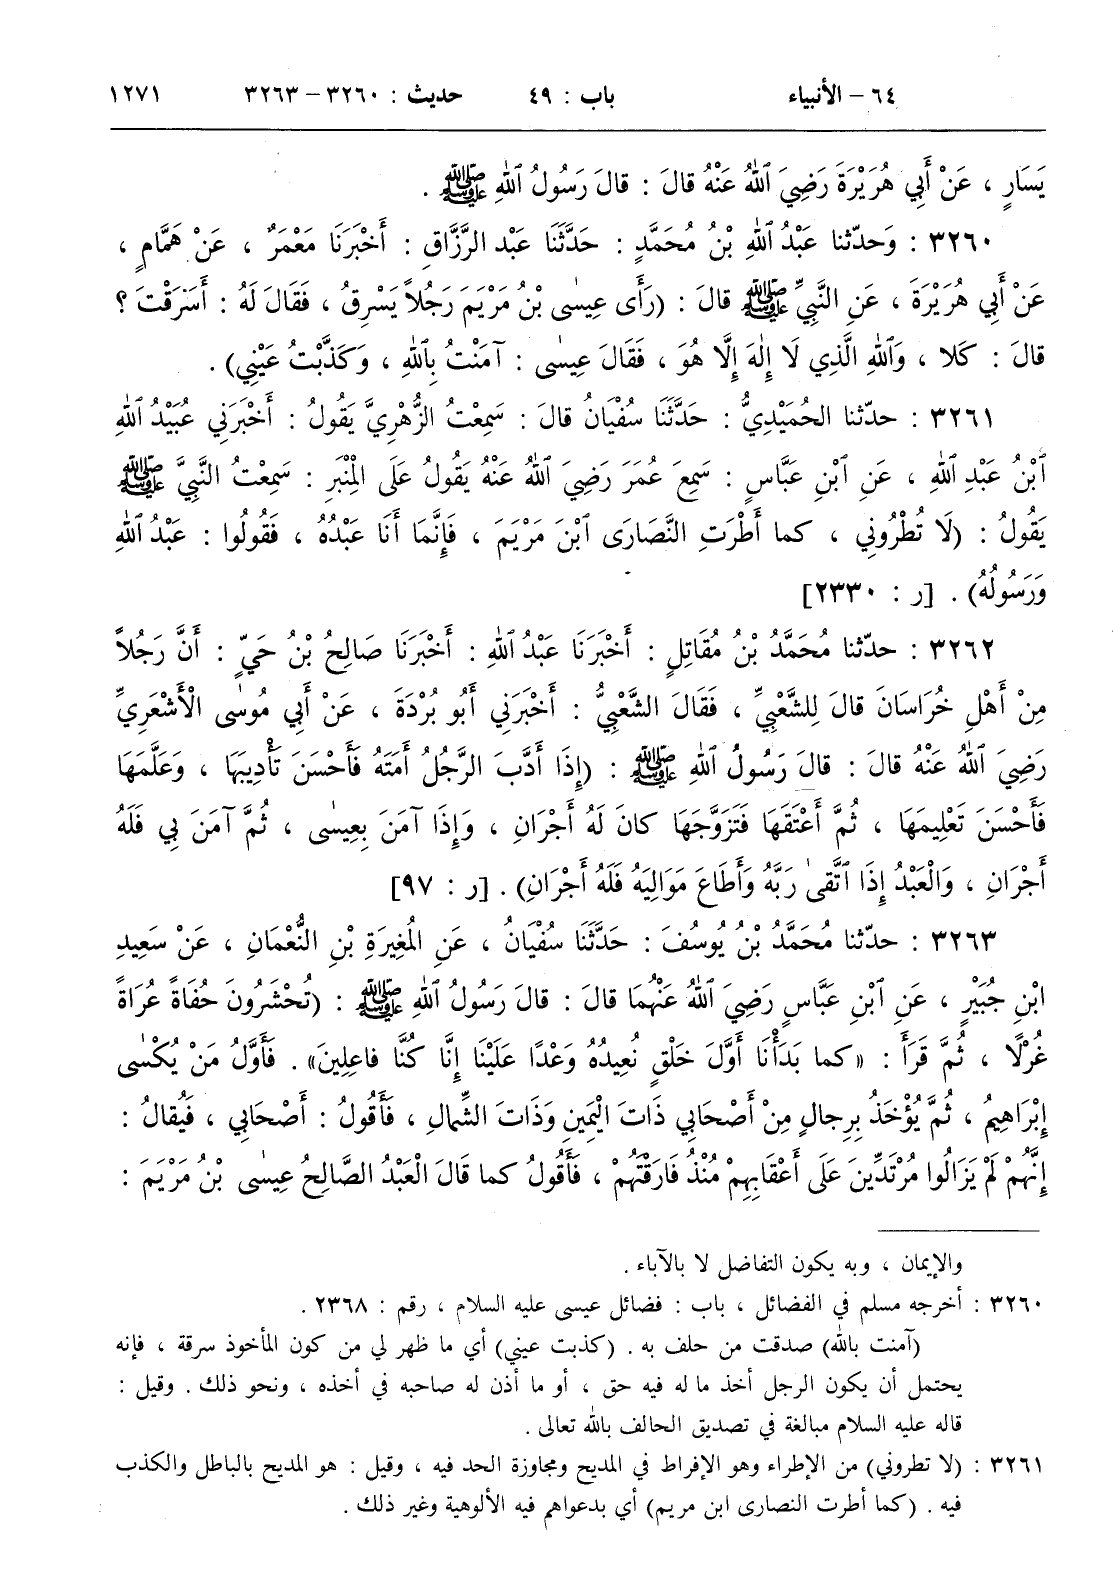 ٦٤ – الأنبياء باب : ٤٩ حديث : ٣٢٦٠ – ٣٢٦٣ ١٢٧١
يَسَارٍ ، عَنْ أَبِي هُرَيْرَةَ رَضِيَ ٱللهُ عَنْهُ قالَ : قالَ رَسُولُ ٱللهِ ﷺ .
٣٢٦٠ : وَحدّثنا عَبْدُ ٱللهِ بْنُ مُحَمَّدٍ : حَدَّثَنَا عَبْد الرَّزَّاقِ : أَخْبَرَنَا مَعْمَرٌ ، عَنْ هَمَّامٍ ،
عَنْ أَبِي هُرَيْرَةَ ، عَنِ النَّبِيِّ ﷺ قالَ : (رَأَى عِيسٰى بْنُ مَرْيَمَ رَجُلاً يَسْرِقُ ، فَقَالَ لَهُ : أَسَرَقْتَ ؟
قالَ : كَلا ، وَٱللهِ الَّذِي لَا إِلٰهَ إِلَّا هُوَ ، فَقَالَ عِيسٰى : آمَنْتُ بِٱللهِ ، وَكَذَّبْتُ عَيْنِي) .
٣٢٦١ : حدّثنا الحُمَيْدِيُّ : حَدَّثَنَا سُفْيَانُ قالَ : سَمِعْتُ الزُّهْرِيَّ يَقُولُ : أَخْبَرَنِي عُبَيْدُ ٱللهِ
ٱبْنُ عَبْدِ ٱللهِ ، عَنِ ٱبْنِ عَبَّاسٍ : سَمِعَ عُمَرَ رَضِيَ ٱللهُ عَنْهُ يَقُولُ عَلَى الْمِنْبَرِ : سَمِعْتُ النَّبِيَّ ﷺ
يَقُولُ : (لَا تُطْرُونِي ، كما أَطْرَتِ النَّصَارَى ٱبْنَ مَرْيَمَ ، فَإِنَّمَا أَنَا عَبْدُهُ ، فَقُولُوا : عَبْدُ ٱللهِ
وَرَسُولُهُ) . [ر : ٢٣٣٠]
٣٢٦٢ : حدّثنا مُحَمَّدُ بْنُ مُقَاتِلٍ : أَخْبَرَنَا عَبْدُ ٱللهِ : أَخْبَرَنَا صَالِحُ بْنُ حَيٍّ : أَنَّ رَجُلاً
مِنْ أَهْلِ خُرَاسَانَ قالَ لِلشَّعْبِيِّ ، فَقَالَ الشَّعْبِيُّ : أَخْبَرَنِي أَبُو بُرْدَةَ ، عَنْ أَبِي مُوسٰى الْأَشْعَرِيِّ
رَضِيَ ٱللهُ عَنْهُ قالَ : قالَ رَسُولُ ٱللهِ ﷺ : (إِذَا أَدَّبَ الرَّجُلُ أَمَتَهُ فَأَحْسَنَ تَأْدِيبَهَا ، وَعَلَّمَهَا
فَأَحْسَنَ تَعْلِيمَهَا ، ثُمَّ أَعْتَقَهَا فَتَزَوَّجَهَا كانَ لَهُ أَجْرَانِ ، وَإِذَا آمَنَ بِعِيسٰى ، ثُمَّ آمَنَ بِي فَلَهُ
أَجْرَانِ ، وَالْعَبْدُ إِذَا ٱتَّقىٰ رَبَّهُ وَأَطَاعَ مَوَالِيَهُ فَلَهُ أَجْرَانِ) . [ر : ٩٧]
٣٢٦٣ : حدّثنا مُحَمَّدُ بْنُ يُوسُفَ : حَدَّثَنَا سُفْيَانُ ، عَنِ الْمُغِيرَةِ بْنِ النُّعْمَانِ ، عَنْ سَعِيدِ
ابْنِ جُبَيْرٍ ، عَنِ ٱبْنِ عَبَّاسٍ رَضِيَ ٱللهُ عَنْهُمَا قالَ : قالَ رَسُولُ ٱللهِ ﷺ : (تُحْشَرُونَ حُفَاةً عُرَاةً
غُرْلًا ، ثُمَّ قَرَأَ : «كما بَدَأْنَا أَوَّلَ خَلْقٍ نُعِيدُهُ وَعْدًا عَلَيْنَا إِنَّا كُنَّا فاعِلِينَ» . فَأَوَّلُ مَنْ يُكْسٰى
إِبْرَاهِيمُ ، ثُمَّ يُؤْخَذُ بِرِجالٍ مِنْ أَصْحَابِي ذَاتَ الْيَمِينِ وَذَاتَ الشِّمالِ ، فَأَقُولُ : أَصْحَابِي ، فَيُقالُ :
إِنَّهُمْ لَمْ يَزَالُوا مُرْتَدِّينَ عَلَى أَعْقَابِهِمْ مُنْذُ فَارَقْتَهُمْ ، فَأَقُولُ كما قَالَ الْعَبْدُ الصَّالِحُ عِيسٰى بْنُ مَرْيَمَ :
والإيمان ، وبه يكون التفاضل لا بالآباء .
٣٢٦٠ : أخرجه مسلم في الفضائل ، باب : فضائل عيسى عليه السلام ، رقم : ٢٣٦٨ .
(آمنت بالله) صدقت من حلف به . (كذبت عيني) أي ما ظهر لي من كون المأخوذ سرقة ، فإنه
يحتمل أن يكون الرجل أخذ ما له فيه حق ، أو ما أذن له صاحبه في أخذه ، ونحو ذلك . وقيل :
قاله عليه السلام مبالغة في تصديق الحالف بالله تعالى .
٣٢٦١ : (لا تطروني) من الإطراء وهو الإفراط في المديح ومجاوزة الحد فيه ، وقيل : هو المديح بالباطل والكذب
فيه . (كما أطرت النصارى ابن مريم) أي بدعواهم فيه الألوهية وغير ذلك .